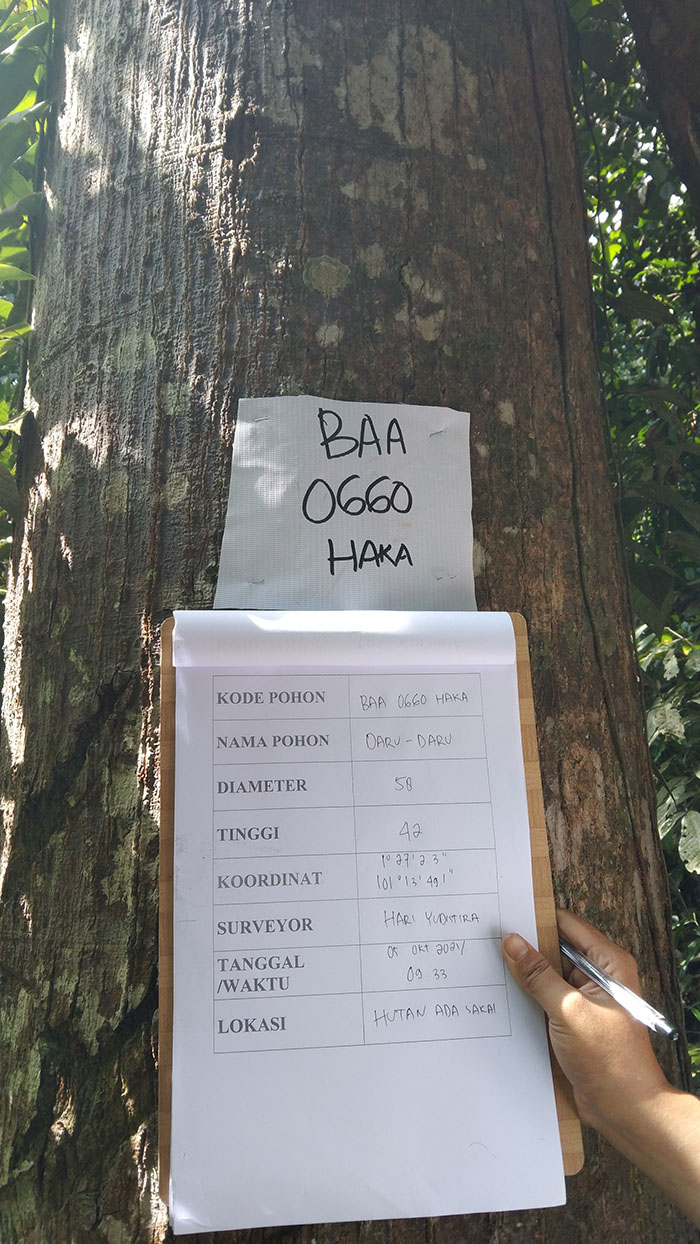 BAA
0660
HAKA
KODE POHON BAA 0660 HAKA
NAMA POHON DARU - DARU
DIAMETER 58
TINGGI 42
KOORDINAT 1° 27' 2 3"
101° 13' 49 1"
SURVEYOR HARI YUDITIRA
TANGGAL /WAKTU 05 OKT 2021/
09.33
LOKASI HUTAN ADA SAKAI